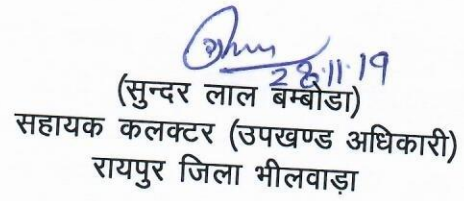 28.11.19
(सुन्दर लाल बम्बोडा)
सहायक कलक्टर (उपखण्ड अधिकारी)
रायपुर जिला भीलवाड़ा